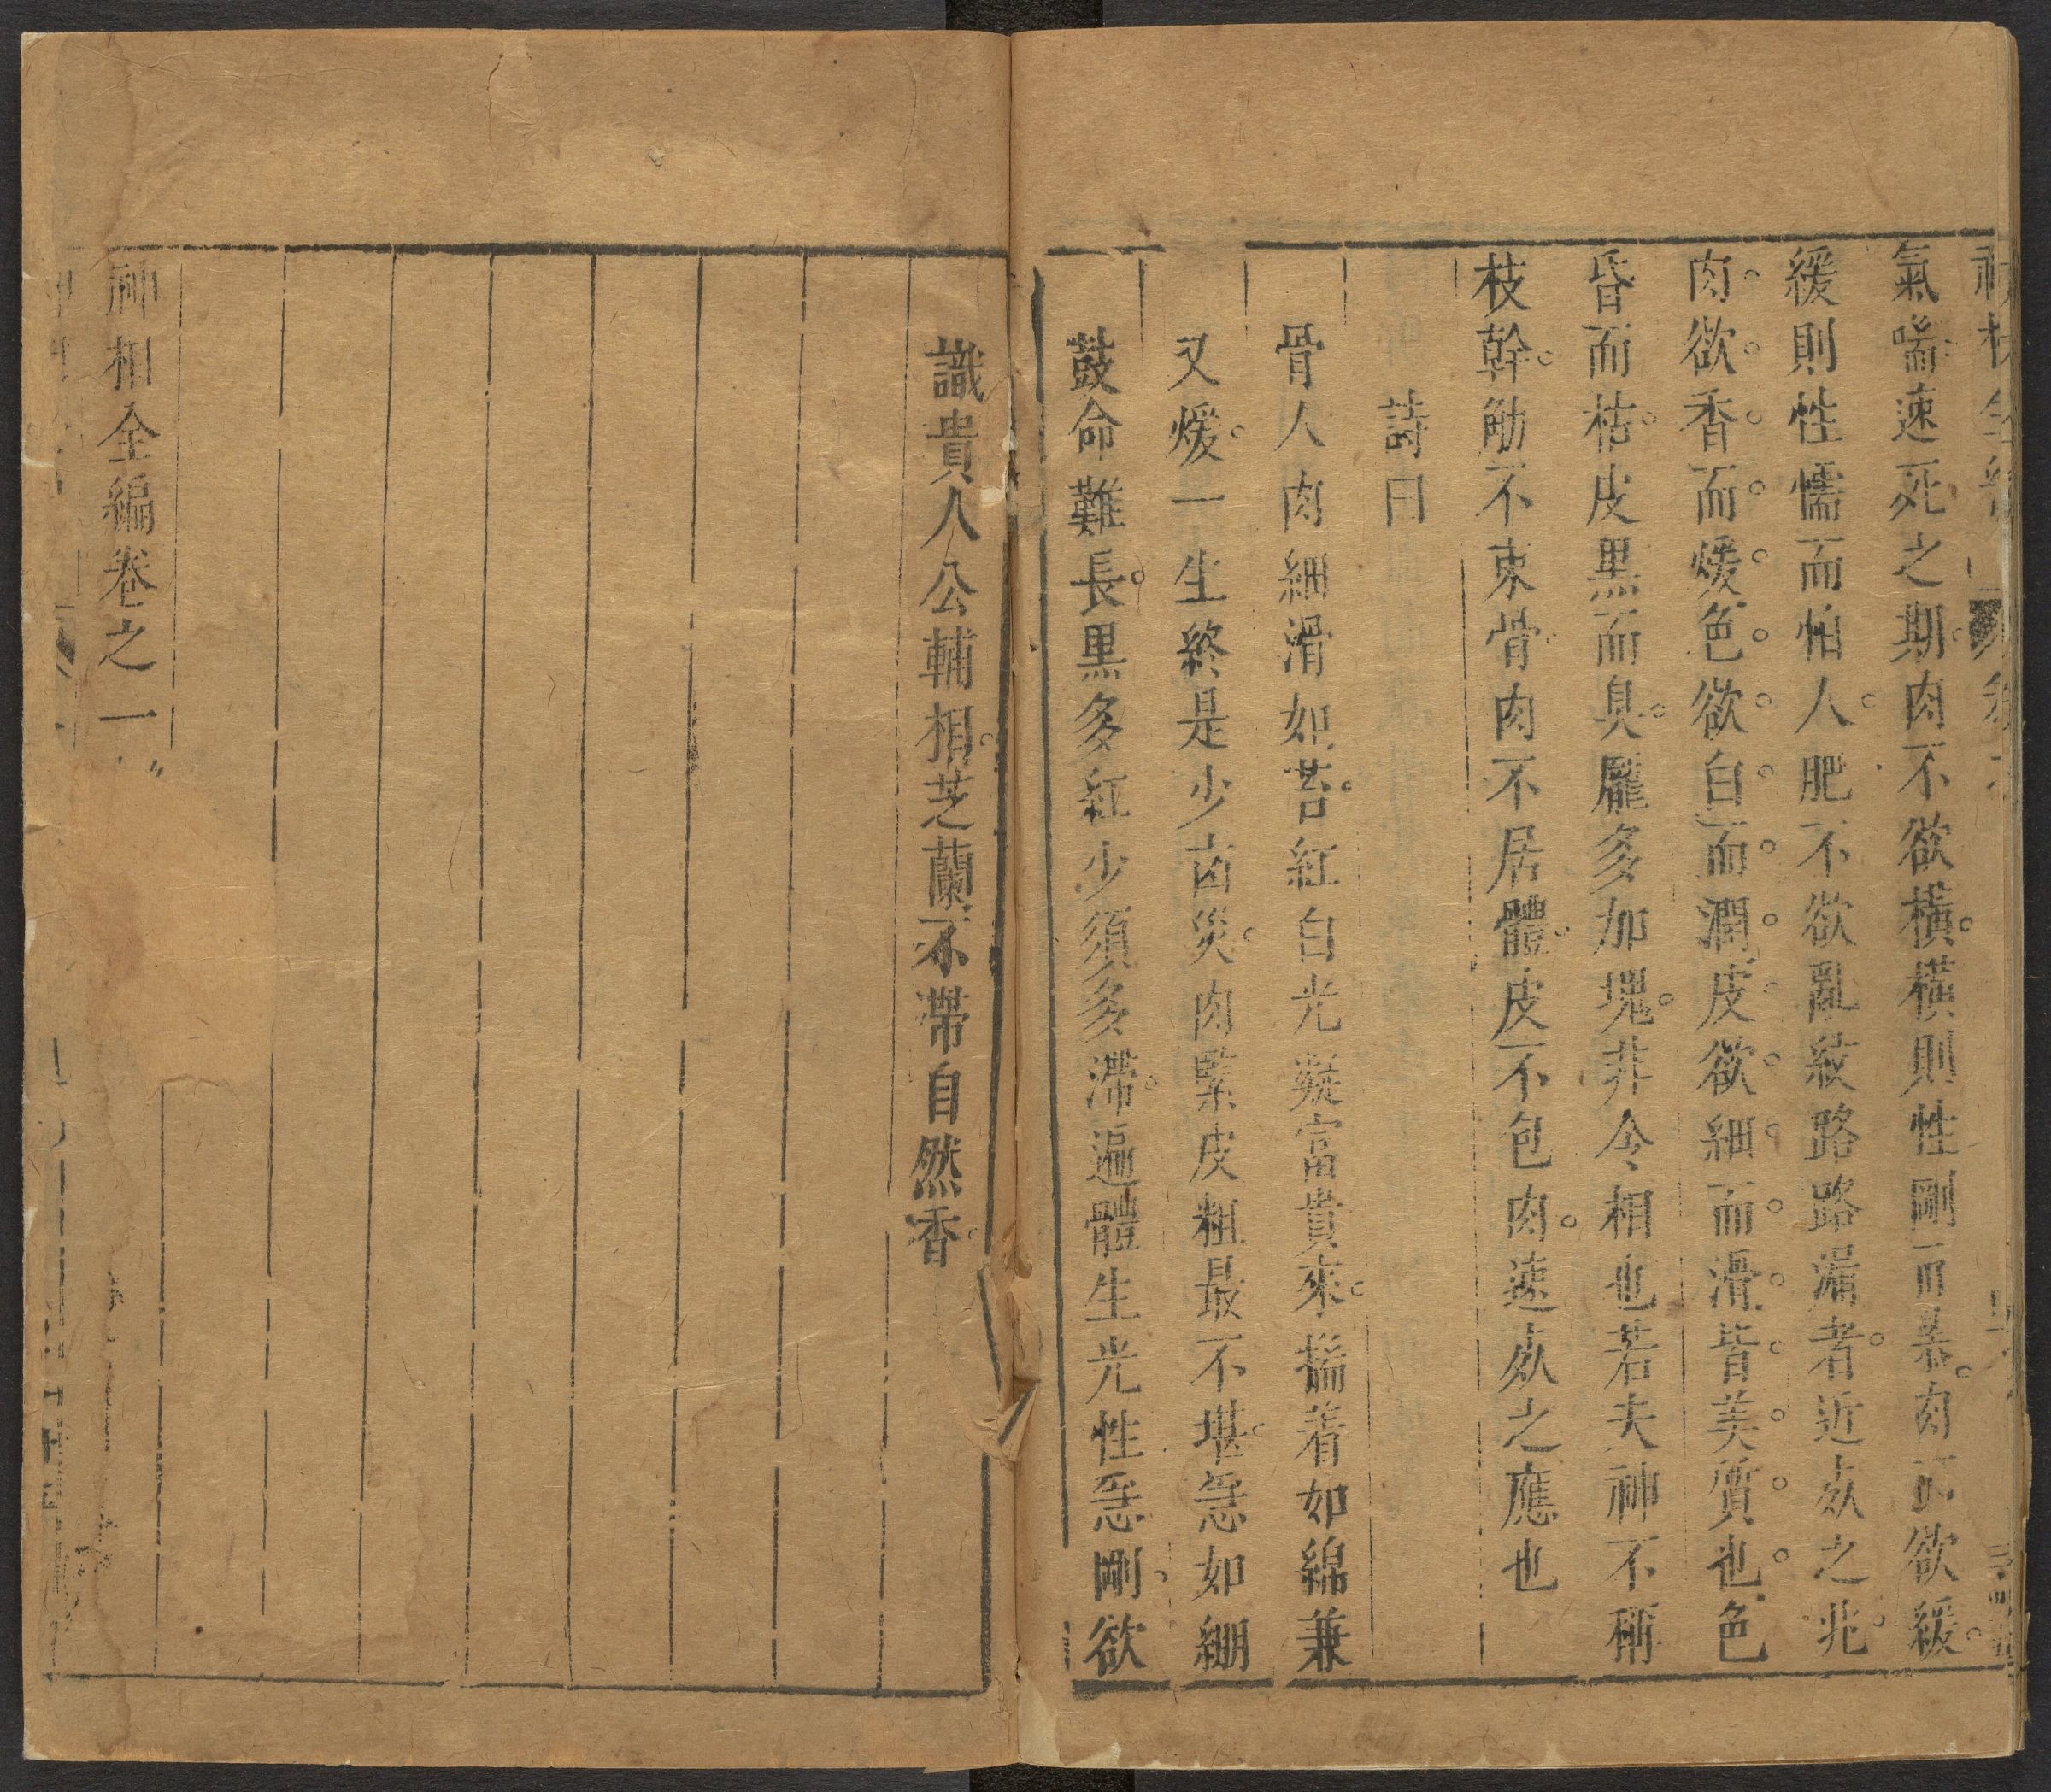 氣喘速死之期肉不欲橫橫則性剛而暴肉不欲緩
緩則性懦而怕人肥不欲亂紋路路漏者近死之兆
肉欲香而煖色欲白而潤皮欲細而滑皆美質也色
昏而枯皮黑而臭龎多加塊非令相也若夫神不稱
枝幹觔不束骨肉不居體皮不包肉速死之應也
詩曰
骨人肉細滑如苔紅白光凝富貴來揣着如綿兼
又煖一生終是少凶災肉緊皮粗最不堪急如綳
鼓命難長黒多紅少須多滯遍體生光性急剛欲
識貴人公輔相芝蘭不帶自然香
神相全編卷之一